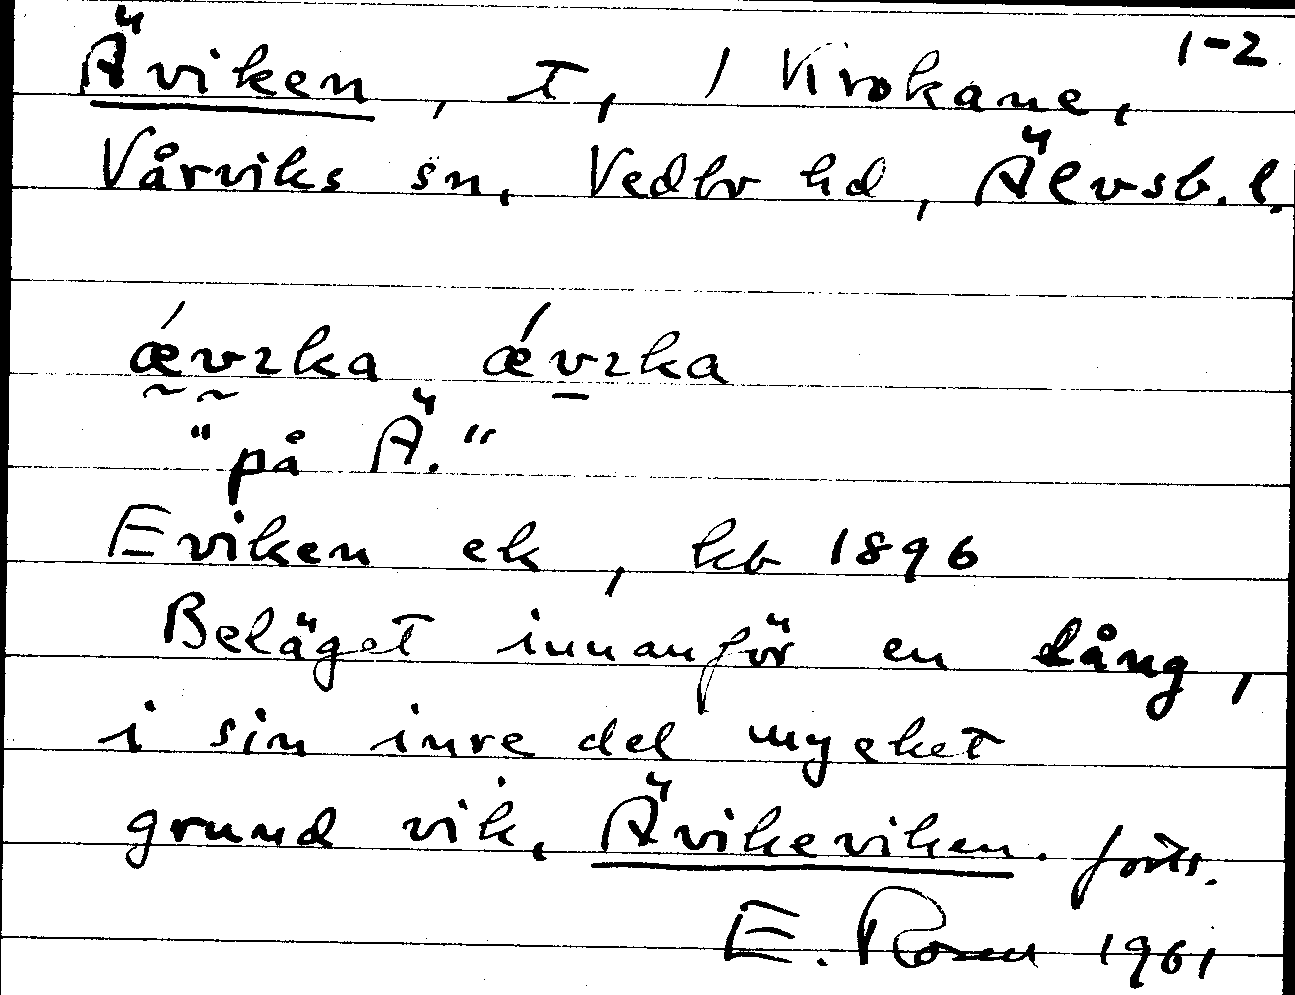 1-2
Äviken, T, 1 Krokane,
Vårviks sn, Vedbo hd, Älvsb. l.
ǽvıka ǽvıka
"på Ä."
Eviken ek, kb 1896
Beläget innanför en lång,
i sin inre del mycket
grund vik, Ävikeviken. forts.
E. Rosen 1961